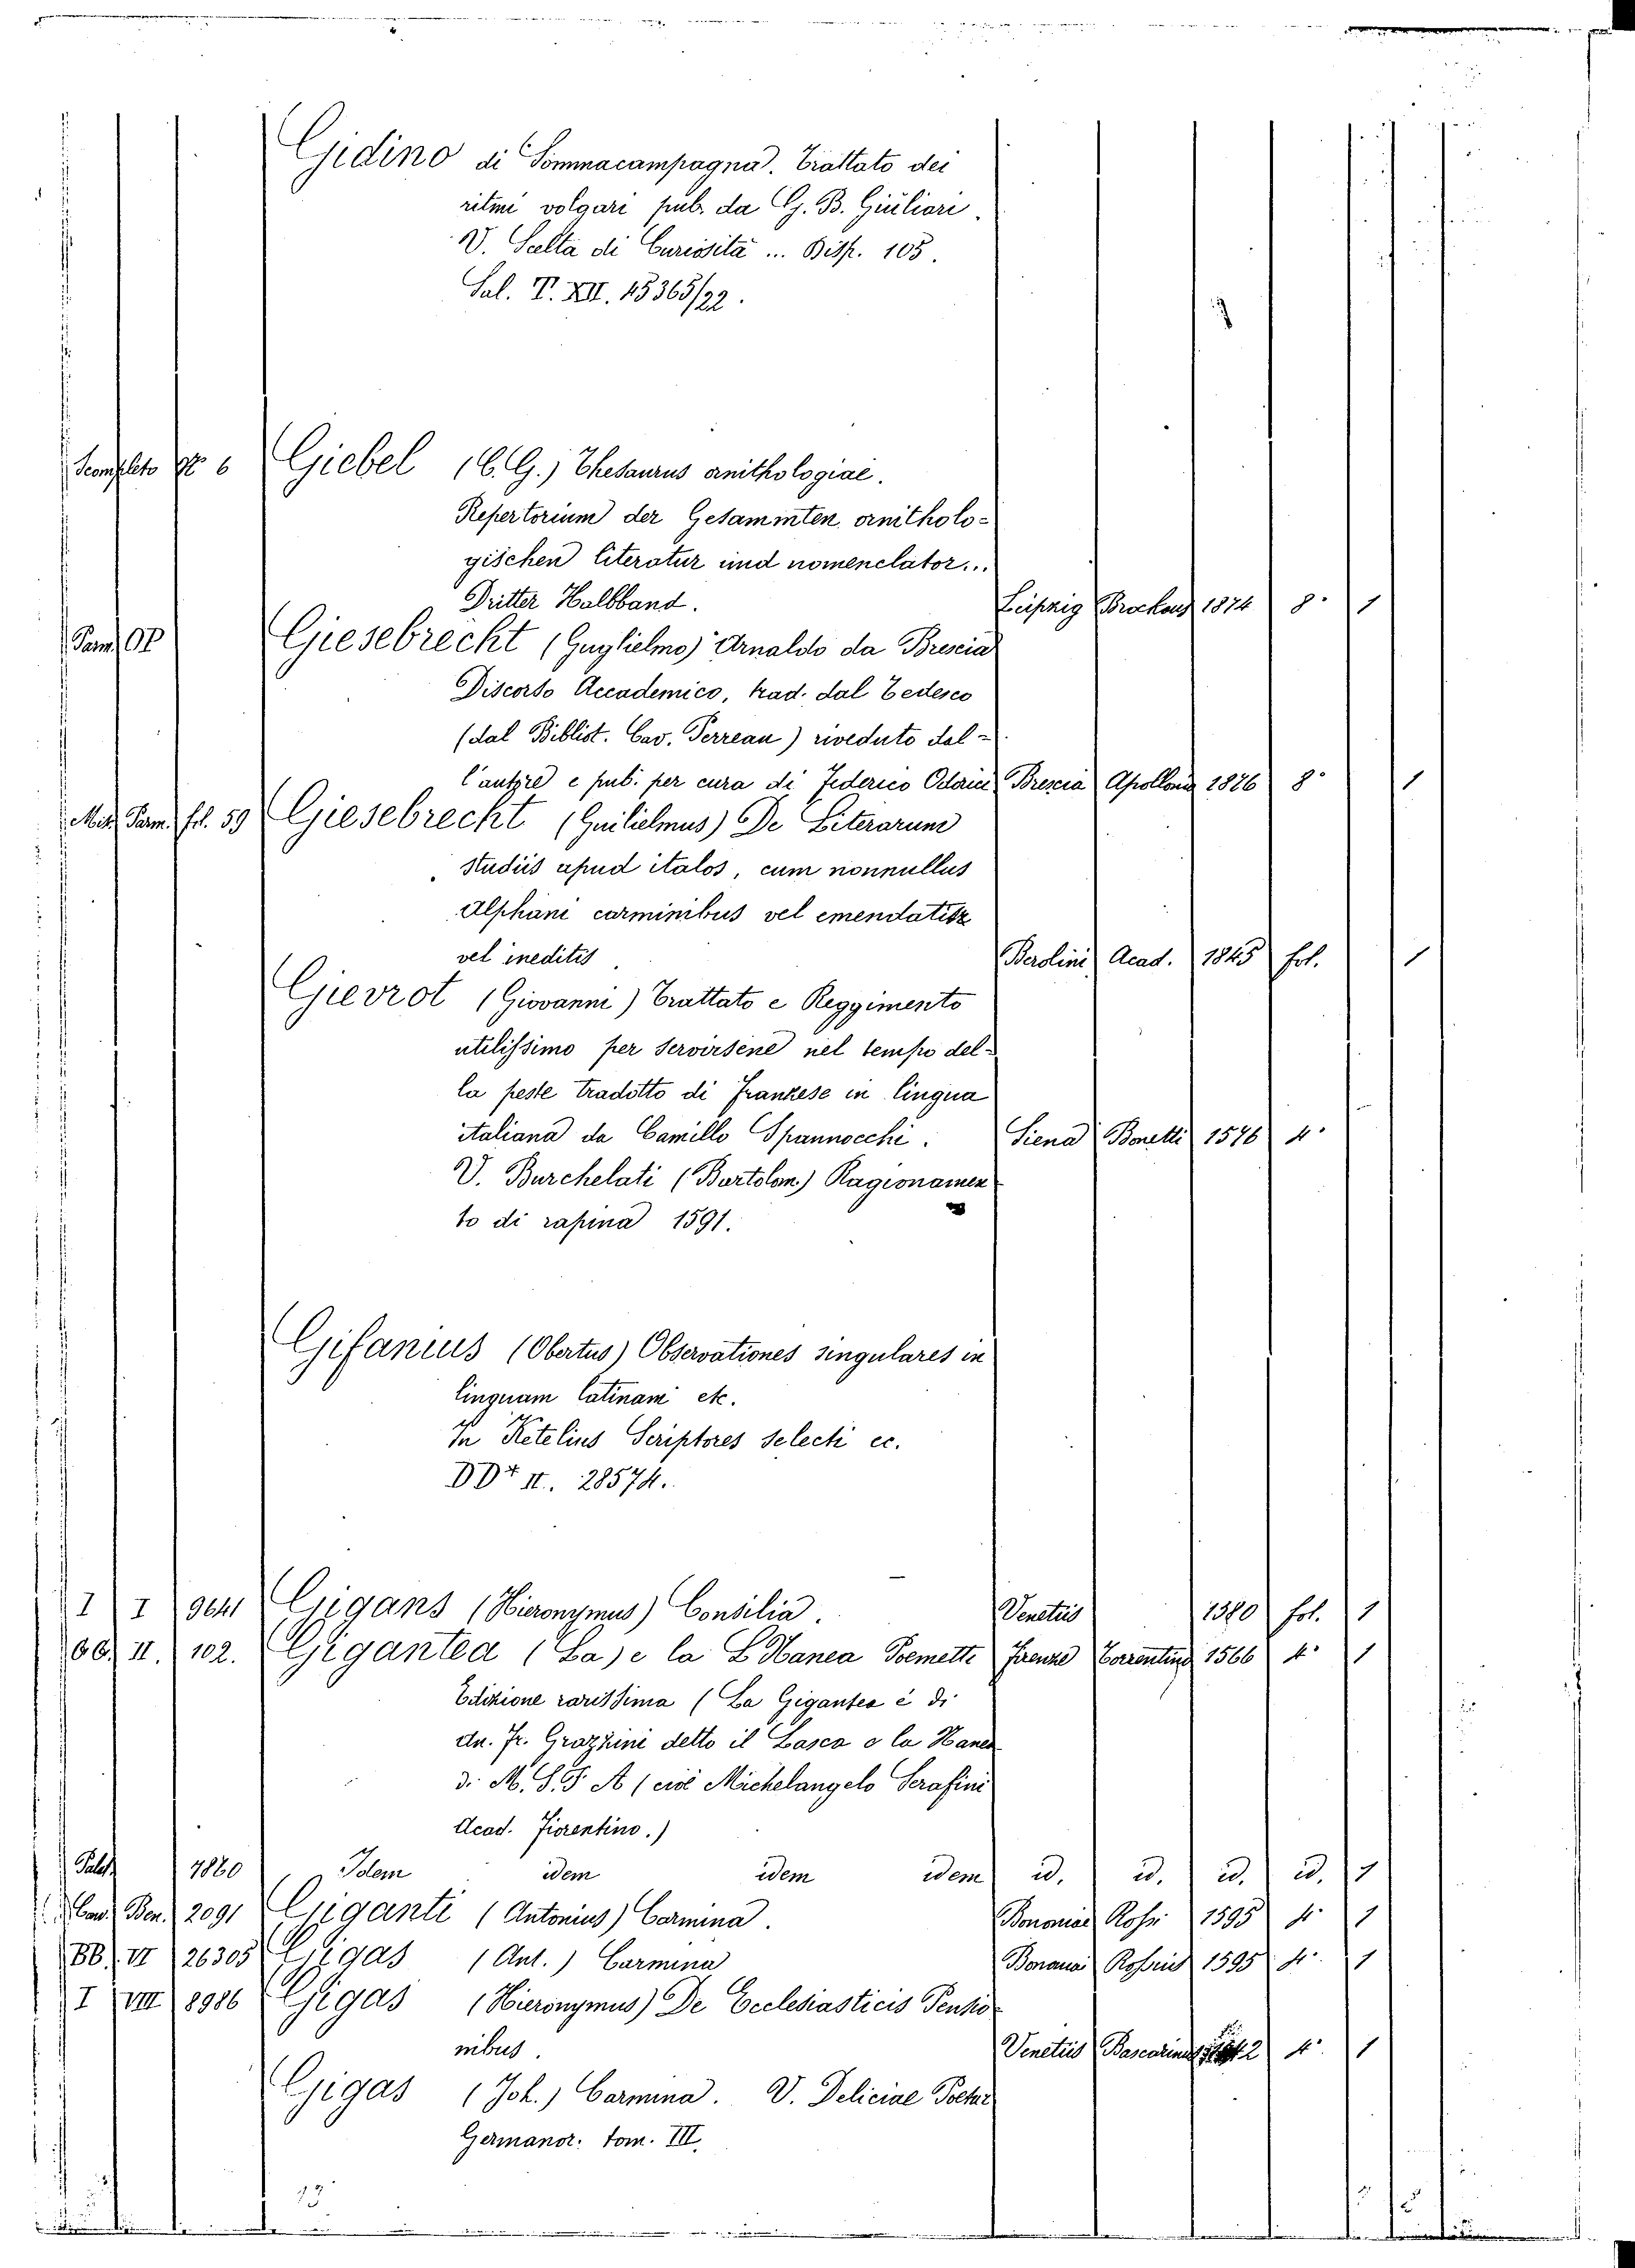 Gidino di Sommacampagna. Trattato dei
ritmi volgari pub. da G. B. Giuliari.
V. Scelta di Curiosità ... Disp. 105.
Sal. T. XII. 15365/22.
Scompleto N° 6 Giebel (C. G.) Thesaurus ornithologiae.
Repertorium der Gesammten ornitholo-
gischen literatur und nomenclator...
Dritter Halbband. Leipzig Brockaus 1874 8° 1
Parm. OP Giesebrecht (Guglielmo) Arnaldo da Brescia
Discorso Accademico, trad. dal Tedesco
(dal Bibliot. Cav. Perreau) riveduto dal-
l'autore e pub. per cura di Federico Odorici Brescia Apollonio 1876 8° 1
Mss. Parm. fol. 59 Giesebrecht (Guilielmus) De Literarum
studiis apud italos, cum nonnullus
Alphani carminibus vel emendatis
vel ineditis Berolini Acad. 1845 fol. 1
Gievrot (Giovanni) Trattato e Reggimento
utilissimo per servirsene nel tempo del-
la peste tradotto di Franzese in lingua
italiana da Camillo Spannocchi. Siena Bonetti 1576 4°
V. Burchelati (Bartolom.) Ragionamen
to di rapina 1591.
Gifanius (Obertus) Observationes singulares in
linguam latinam etc.
In Ketelius Scriptores selecti ec.
DD+ II. 28574.
I I 9641 Gigans (Hieronymus) Consilia. Venetiis 1580 fol. 1
II. 102. Gigantea (La) e la Nanea Poemetti Firenze Torrentino 1566 4° 1
Edizione rarissima (La Gigantea è di
An. Fr. Grazzini detto il Lasca e la Nanea
di M. S. F. A (cioè Michelangelo Serafini
Acad. Fiorentino.)
Palat. 7880 Idem idem idem idem id. id. id. id. 1
Cav. Ben. 2091 Giganti (Antonius) Carmina. Bononiae Rossi 1595 4° 1
BB. VI 26305 Gigas (Ant.) Carmina Bononiae Rossius 1595 4° 1
I VIII 8986 Gigas (Hieronymus) De Ecclesiasticis Pensio
nibus. Venetiis Bascarinus 4° 1
Gigas (Joh.) Carmina. V. Deliciae Poetar
Germanor. tom. III.
13